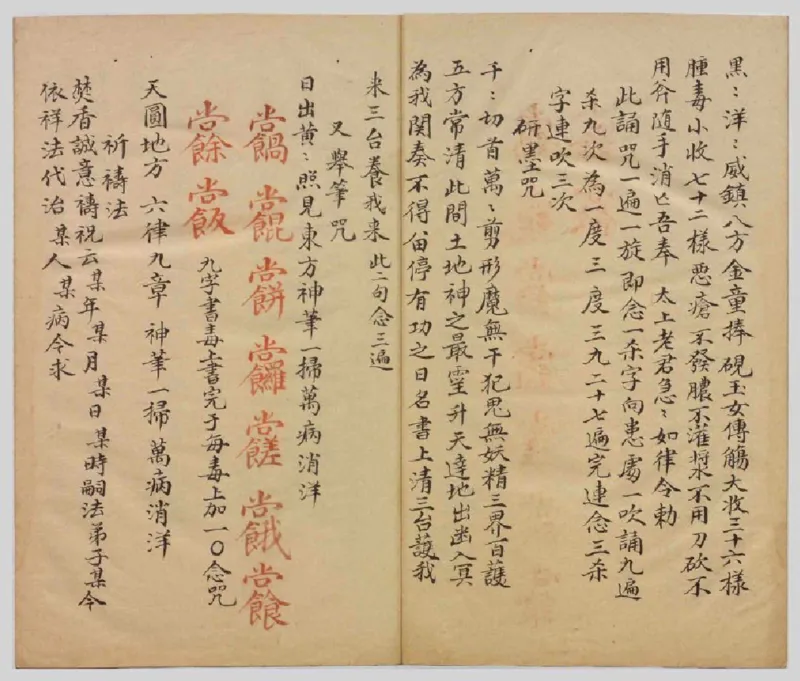 黑〻洋〻威鎮八方金童捧硯玉女傳觴大收三十六樣
腫毒小收七十二樣惡瘡不發膿不灌漿不用刀砍不
用斧随手消亡吾奉 太上老君急〻如律令勅
此誦咒一遍一旋即念一杀字向患處一吹誦九遍
杀九次為一度三度三九二十七遍完連念三杀
字連吹三次
研墨咒
千〻切首萬〻剪形魔無干犯鬼無妖精三界百護
五方常清此間土地神之最靈升天達地出幽入冥
為我関奏不得留停有功之日名書上清三台護我
来三台養我来此二句念三遍
又舉筆咒
日出黄〻照見東方神筆一掃萬病消洋
九字書毒上書完于每毒上加一〇念咒
天圓地方 六律九章 神筆一掃 萬病消洋
祈禱法
焚香誠意禱祝云某年某月某日某時嗣法弟子某今
依祥法代治某人某病今求